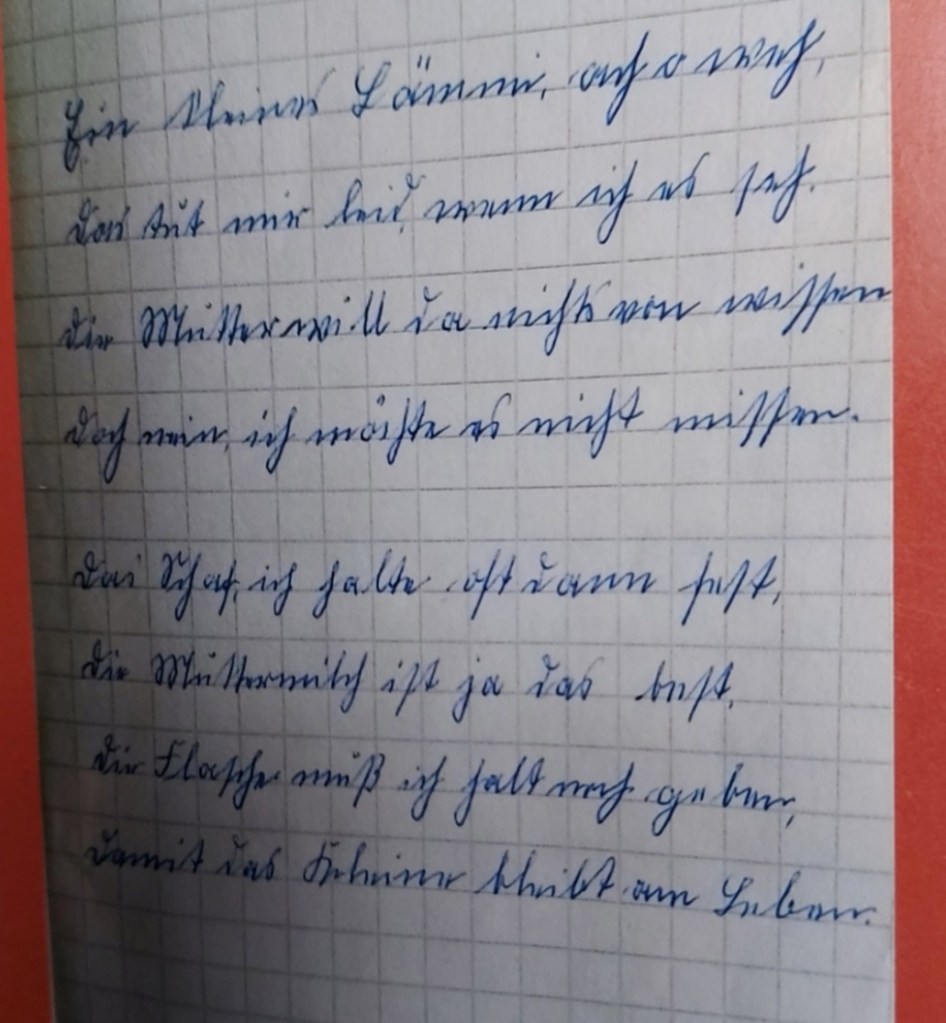 Ein kleines Lämmi, ach o weh,
das tut mir leid, wenn ich es seh.
die Mutter will da nichts von wissen
doch nein, ich möchte es nicht missen.
das Schaf, ich halte oft dann fest,
die Muttermilch ist ja das best.
die Flasche muß ich halt noch geben,
damit das Kleine bleibt am Leben.